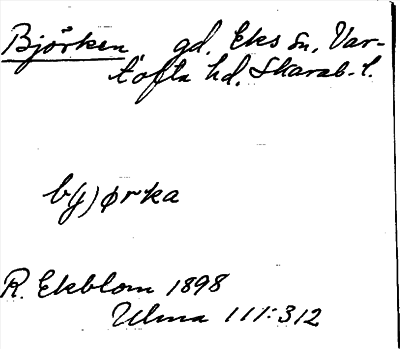 Björken gd. Eks sn, Var-
tofta hd. Skarab. l.
b(j)ørka
R. Ekblom 1898
Ulma 111:312